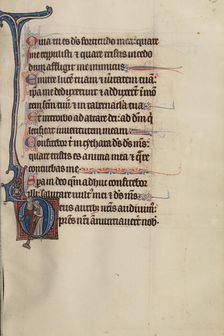 Quia tu es ds fortitudo mea: quare
me repulisti et quare tristis incedo
dum affligit me inimicus
Emitte lucem tuam et ueritatem tuam
ipsa me deduxerunt et adduxerunt in mon
tem scm tuum et in tabernacula tua
Et introibo ad altare dei: ad dm qui
letificat iuuentutem meam
Confitebor tibi in cythara ds ds ms:
quare tristis es anima mea et quare
conturbas me
Spera in deo qm adhuc confitebor
illi: salutare uultus mei et ds ms
Deus auribus nris audiuimus:
patres nri annuntiauerunt nob